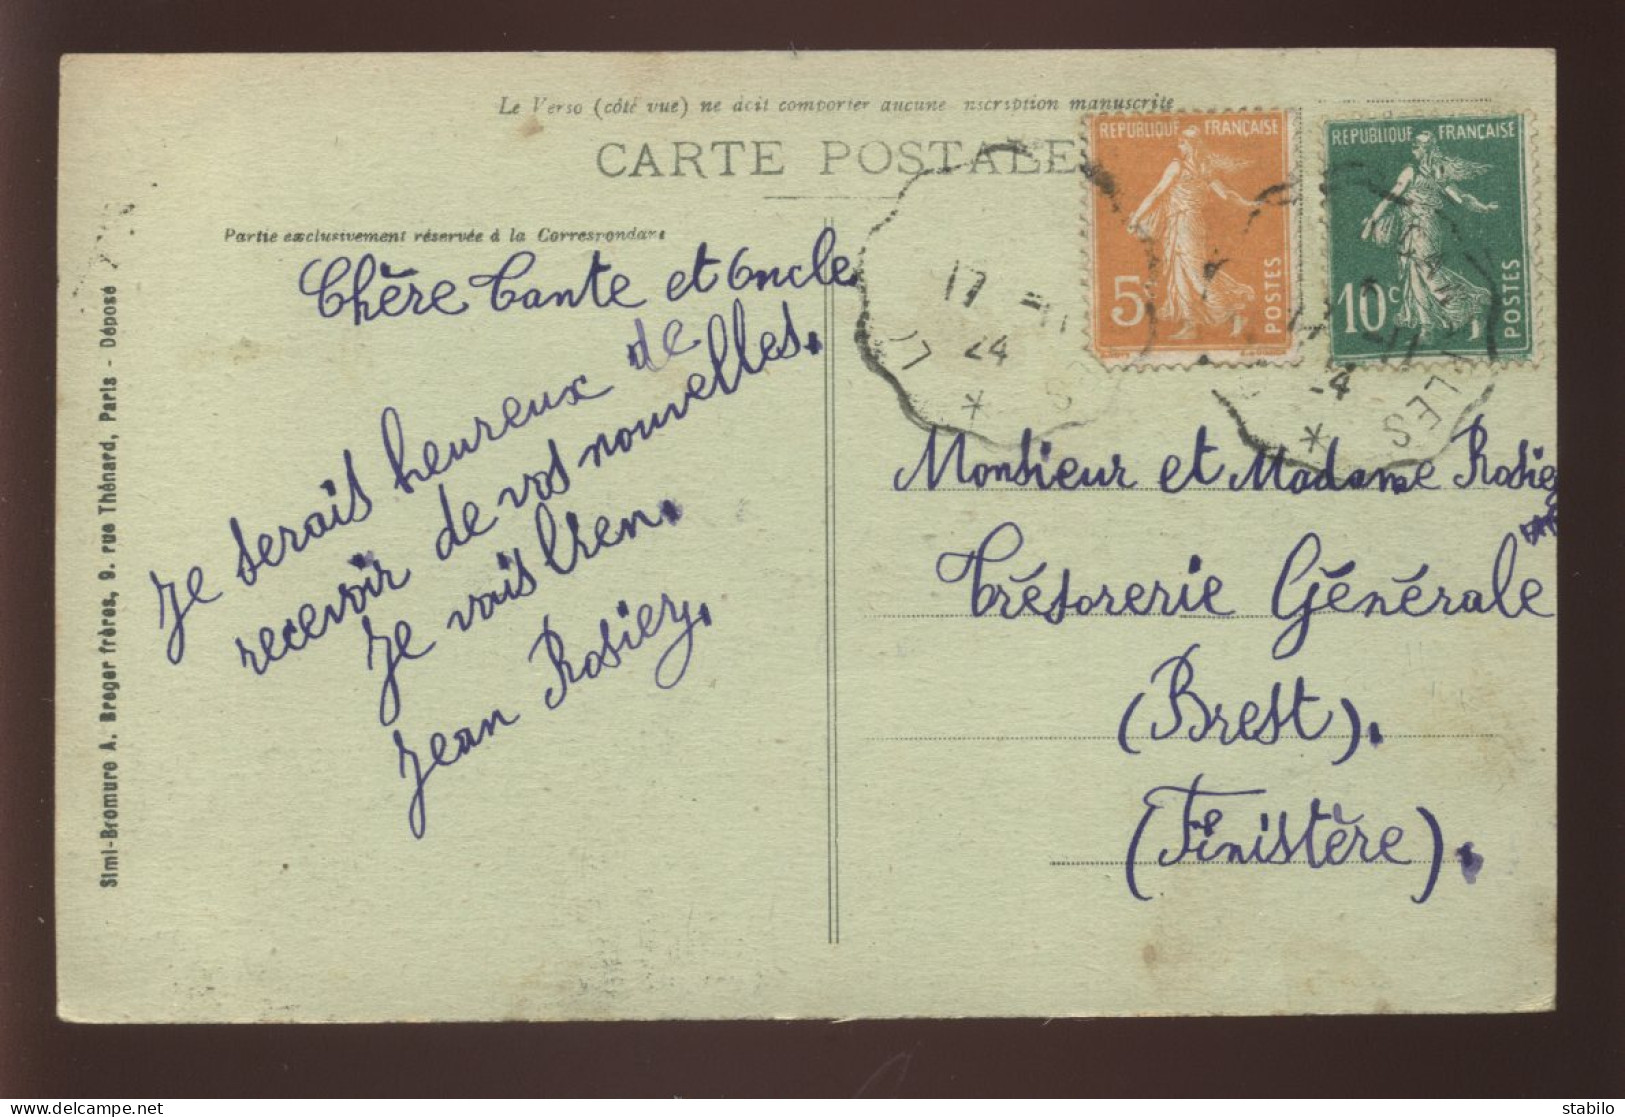 Le Verso (côté vue) ne doit comporter aucune nscription manuscrite
CARTE POSTALE
Partie exclusivement réservée à la Correspondance
REPUBLIQUE FRANÇAISE
5
POSTES
REPUBLIQUE FRANÇAISE
10c
POSTES
17 -11
24
Chère Tante et Oncle
Je serais heureux de
recevoir de vos nouvelles.
Je vais bien.
Jean Rosiez.
Monsieur et Madame Rosiez
Trésorerie Générale
(Brest).
(Finistère).
Simi-Bromure A. Breger frères, 9. rue Thénard, Paris - Déposé
delcampe.net
stabilo